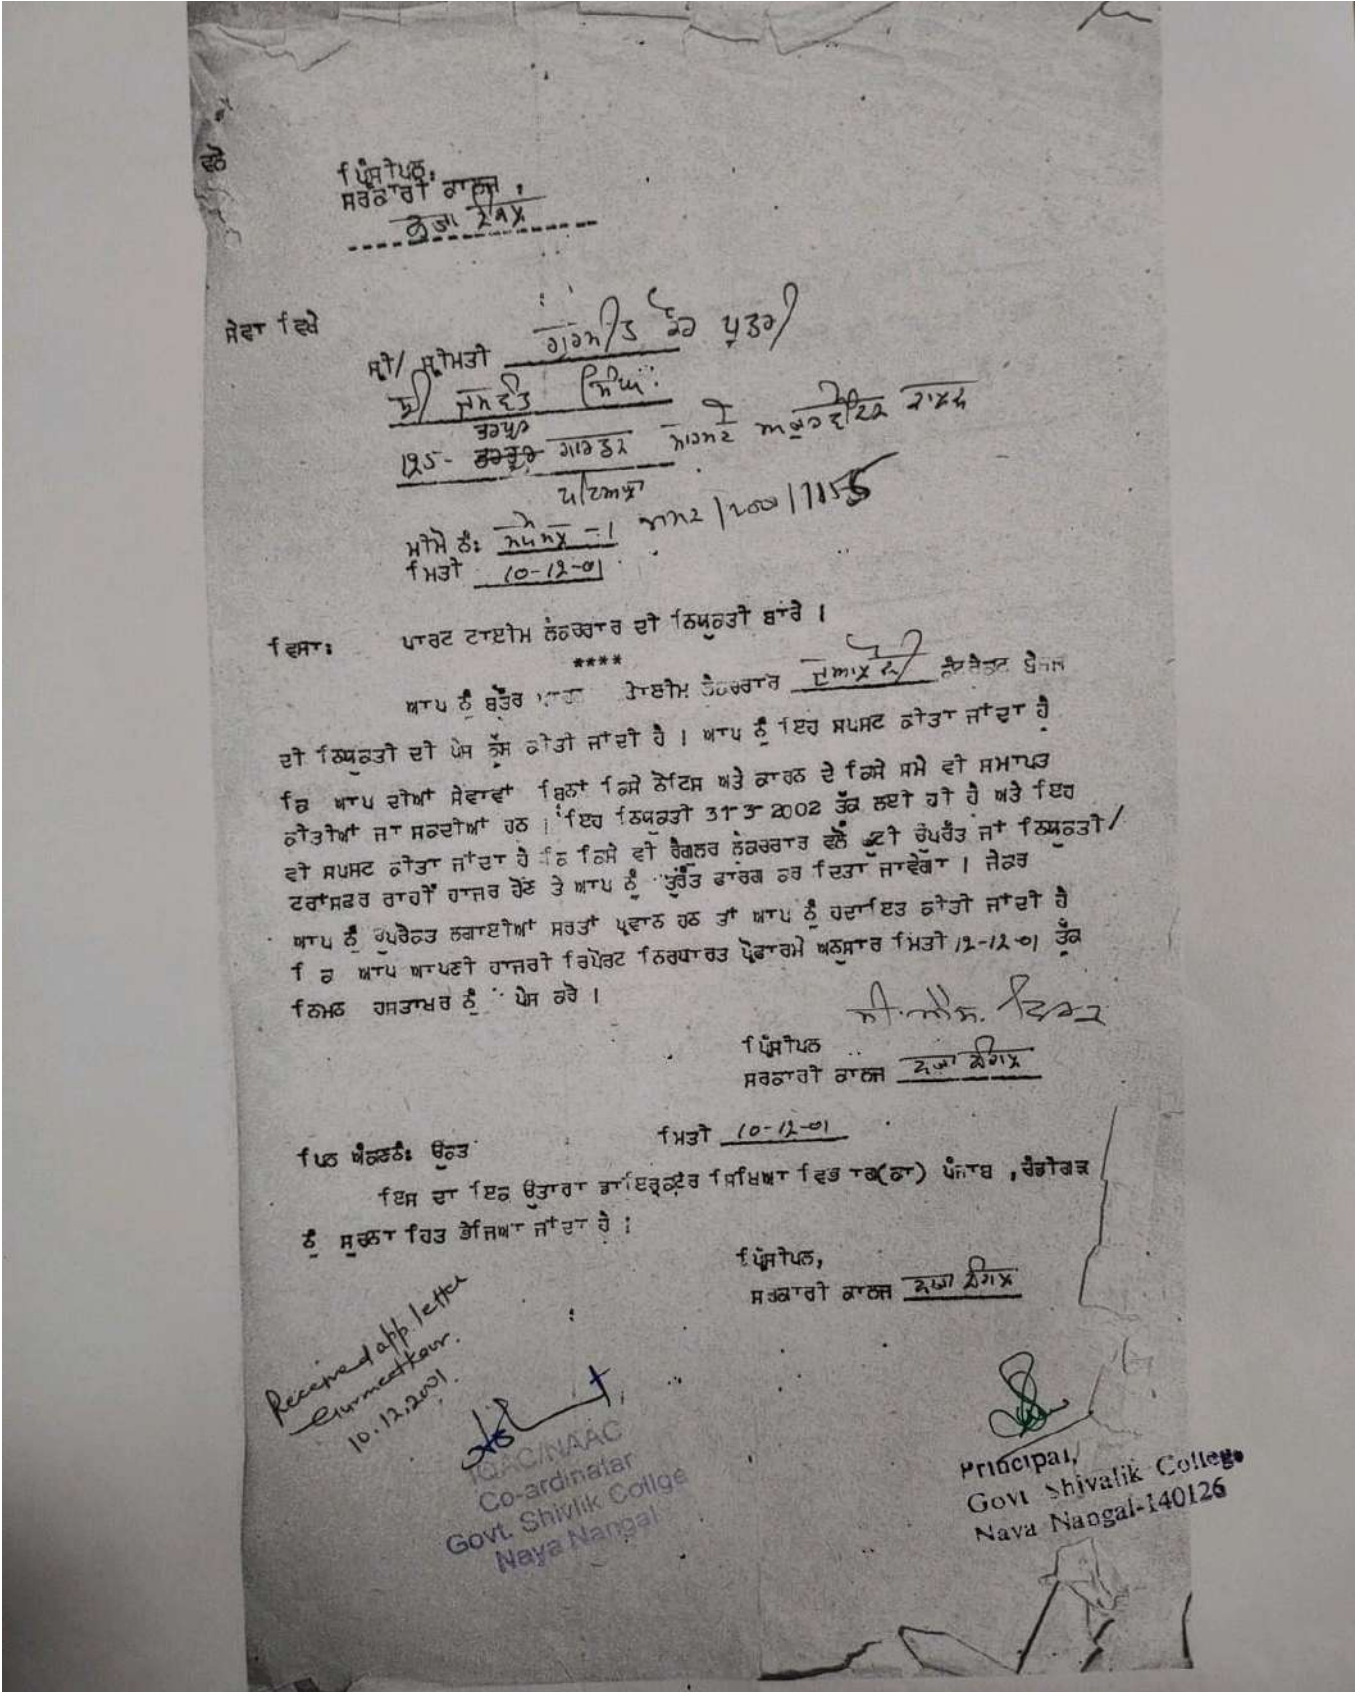 ਵਲੋਂ
ਪ੍ਰਿੰਸੀਪਲ,
ਸਰਕਾਰੀ ਕਾਲਜ,
ਨਯਾ ਨੰਗਲ
ਸੇਵਾ ਵਿਖੇ
ਸ੍ਰੀ/ ਸ੍ਰੀਮਤੀ ਗੁਰਮੀਤ ਕੌਰ ਪੁਤਰੀ
ਸ੍ਰੀ ਜਸਵੰਤ ਸਿੰਘ
125- ਗਾਰਡਨ
ਪਟਿਆਲਾ
ਮੀਮੋ ਨੰ:
ਮਿਤੀ 10-12-01
ਵਿਸ਼ਾ: ਪਾਰਟ ਟਾਈਮ ਲੈਕਚਰਾਰ ਦੀ ਨਿਯੁਕਤੀ ਬਾਰੇ ।
****
ਆਪ ਨੂੰ ਬਤੌਰ ਪਾਰਟ ਟਾਈਮ ਲੈਕਚਰਾਰ
ਦੀ ਨਿਯੁਕਤੀ ਦੀ ਪੇਸ਼ ਕੀਤੀ ਜਾਂਦੀ ਹੈ । ਆਪ ਨੂੰ ਇਹ ਸਪਸਟ ਕੀਤਾ ਜਾਂਦਾ ਹੈ
ਕਿ ਆਪ ਦੀਆਂ ਸੇਵਾਵਾਂ ਬਿਨਾਂ ਕਿਸੇ ਨੋਟਿਸ ਅਤੇ ਕਾਰਨ ਦੇ ਕਿਸੇ ਸਮੇਂ ਵੀ ਸਮਾਪਤ
ਕੀਤੀਆਂ ਜਾ ਸਕਦੀਆਂ ਹਨ । ਇਹ ਨਿਯੁਕਤੀ 31-3-2002 ਤੱਕ ਲਈ ਹੀ ਹੈ ਅਤੇ ਇਹ
ਵੀ ਸਪਸਟ ਕੀਤਾ ਜਾਂਦਾ ਹੈ ਕਿ ਕਿਸੇ ਵੀ ਰੈਗੂਲਰ ਲੈਕਚਰਾਰ ਵਲੋਂ ਛੁਟੀ ਉਪਰੰਤ ਜਾਂ ਨਿਯੁਕਤੀ/
ਟਰਾਂਸਫਰ ਰਾਹੀਂ ਹਾਜਰ ਹੋਣ ਤੇ ਆਪ ਨੂੰ ਤੁਰੰਤ ਫਾਰਗ ਕਰ ਦਿਤਾ ਜਾਵੇਗਾ । ਜੇਕਰ
ਆਪ ਨੂੰ ਉਪਰੋਕਤ ਲਗਾਈਆਂ ਸਰਤਾਂ ਪ੍ਰਵਾਨ ਹਨ ਤਾਂ ਆਪ ਨੂੰ ਹਦਾਇਤ ਕੀਤੀ ਜਾਂਦੀ ਹੈ
ਕਿ ਆਪ ਆਪਣੀ ਹਾਜਰੀ ਰਿਪੋਰਟ ਨਿਰਧਾਰਤ ਪ੍ਰੋਫਾਰਮੇ ਅਨੁਸਾਰ ਮਿਤੀ 12-12-01 ਤੱਕ
ਨਿਮਨ ਹਸਤਾਖਰ ਨੂੰ ਪੇਸ ਕਰੋ ।
ਪ੍ਰਿੰਸੀਪਲ
ਸਰਕਾਰੀ ਕਾਲਜ ਨਯਾ ਨੰਗਲ
ਪਿਠ ਅੰਕਣਨੰ: ਉਕਤ ਮਿਤੀ 10-12-01
ਇਸ ਦਾ ਇਕ ਉਤਾਰਾ ਡਾਇਰੈਕਟਰ ਸਿਖਿਆ ਵਿਭਾਗ(ਕਾ) ਪੰਜਾਬ ,ਚੰਡੀਗੜ
ਨੂੰ ਸੂਚਨਾ ਹਿਤ ਭੇਜਿਆ ਜਾਂਦਾ ਹੈ ।
ਪ੍ਰਿੰਸੀਪਲ,
ਸਰਕਾਰੀ ਕਾਲਜ ਨਯਾ ਨੰਗਲ
Received app. letter
Gurmeet Kaur.
10.12.2001.
IQAC/NAAC
Co-ardinatar
Govt. Shivlik Collge
Naya Nangal
Principal,
Govt Shivalik College
Naya Nangal-140126